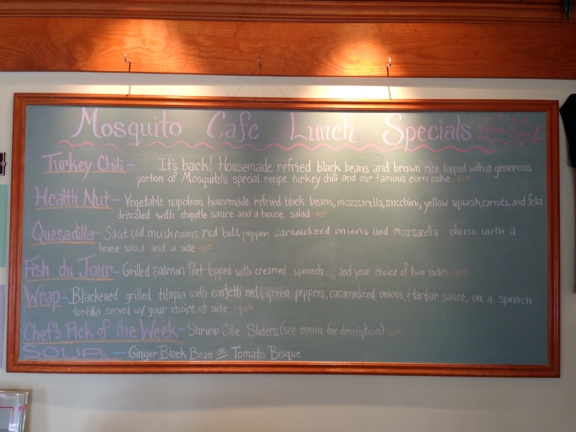 Mosquito Cafe Lunch Specials
Turkey Chili - It's back! Housemade refried black beans and brown rice topped with a generous
portion of Mosquito's special recipe turkey chili and our famous corn cake
Health Nut - Vegetable napoleon, housemade refried black beans, mozzarella, zucchini, yellow squash, carrots, and feta
drizzled with chipotle sauce and a house salad
Quesadilla - Sautéed mushrooms, red bell pepper, caramelized onions and mozzarella cheese with a
house salad and a side
Fish du Jour - Grilled salmon filet topped with creamed spinach... and your choice of two sides
Wrap - Blackened grilled tilapia with confetti red & green peppers, caramelized onions, & tartar sauce, on a spinach
tortilla served w/ your choice of side
Chef's Pick of the Week - Shrimp Cake Sliders (see menu for description)
SOUPs - Ginger Black Bean Tomato Bisque